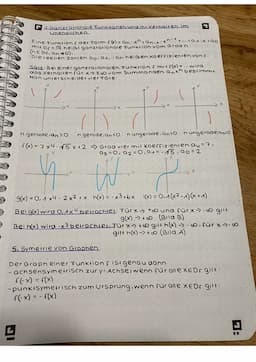 4. Ganzrationale Funktionen und ihr Verhalten im
Unendlichen
Eine Funktion f der Form f(x) = aₙxⁿ + aₙ₋₁xⁿ⁻¹ + ... + a₁x + a₀
heißt ganzrationale Funktion vom Grad n
Die reellen Zahlen heißen Koeffizienten von f.
Satz: Bei einer ganzrationalen Funktion f wird
das Verhalten für x → ±∞ vom Summanden aₙxⁿ bestimmt.
Man unterscheidet vier Fälle
n gerade, aₙ>0 n gerade, aₙ<0 n ungerade, aₙ>0 n ungerade, aₙ<0
g(x)=0,1x⁴-2x²+x h(x)=-x³+6x
Bei g(x) wird 0,1x⁴ betrachtet. Für x → +∞ und für x → -∞ gilt
g(x) → +∞ (Bild B)
Bei h(x) wird -x³ betrachtet: Für x → +∞ gilt h(x) → -∞. Für x → -∞
gilt h(x) → +∞ (Bild A)
5. Symetrie von Graphen
Der Graph einer Funktion f ist genau dann
- achsensymetrisch zur y-Achse, wenn für alle x∈Df gilt:
f(-x) = f(x)
- punktsymetrisch zum Ursprung, wenn für alle x∈Df gilt:
f(-x) = -f(x)